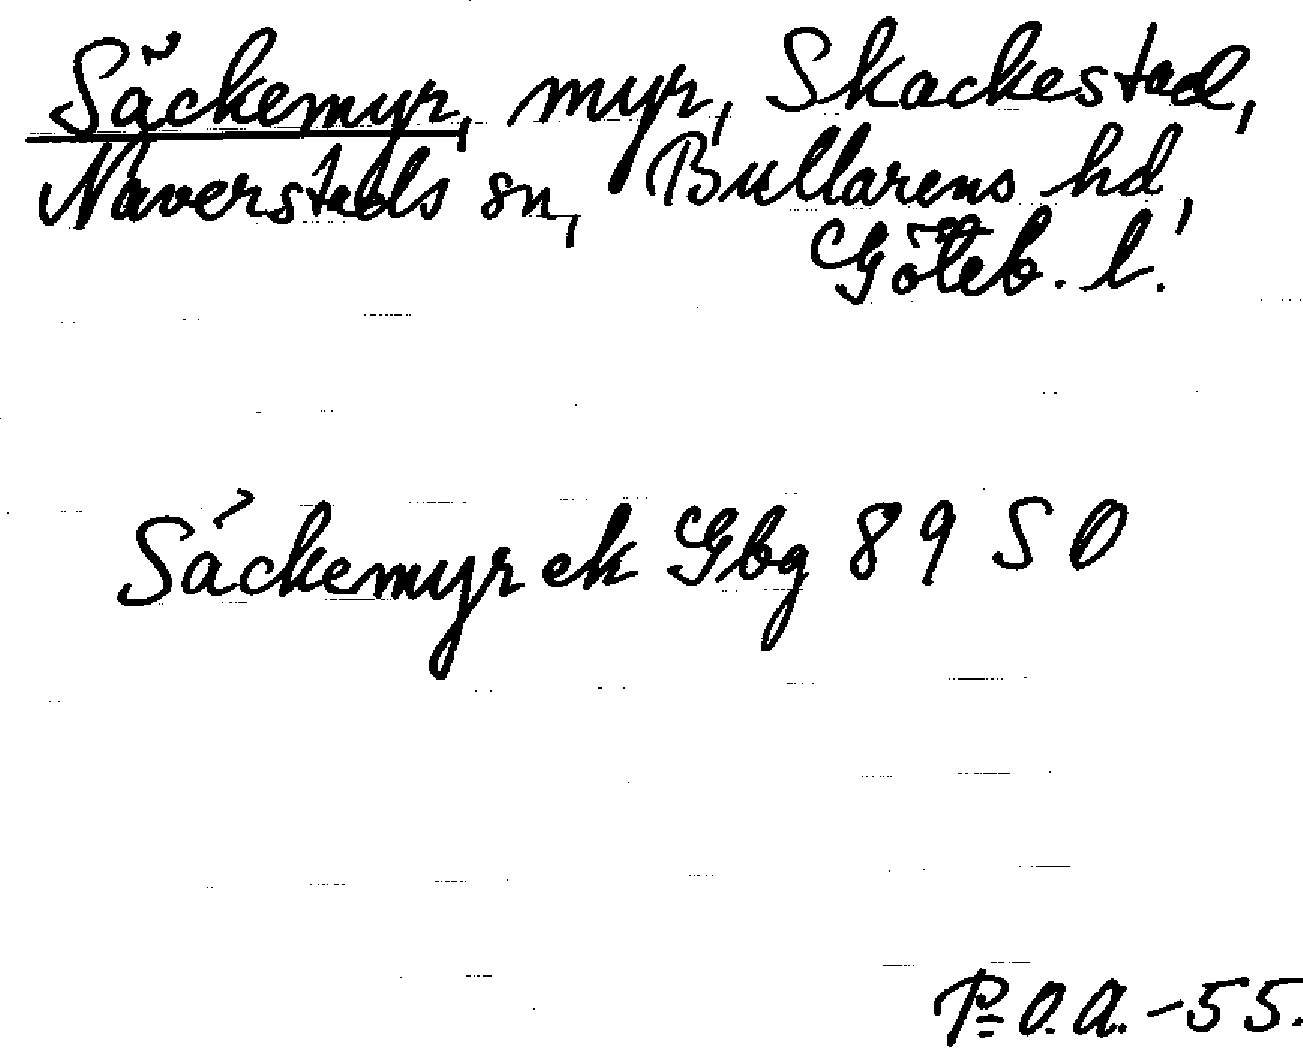 Säckemyr, myr, Skackestad,
Naverstads sn, Bullarens hd,
Göteb. l.
Säckemyr ek Gbg 89 SO
P=O.A. -55.